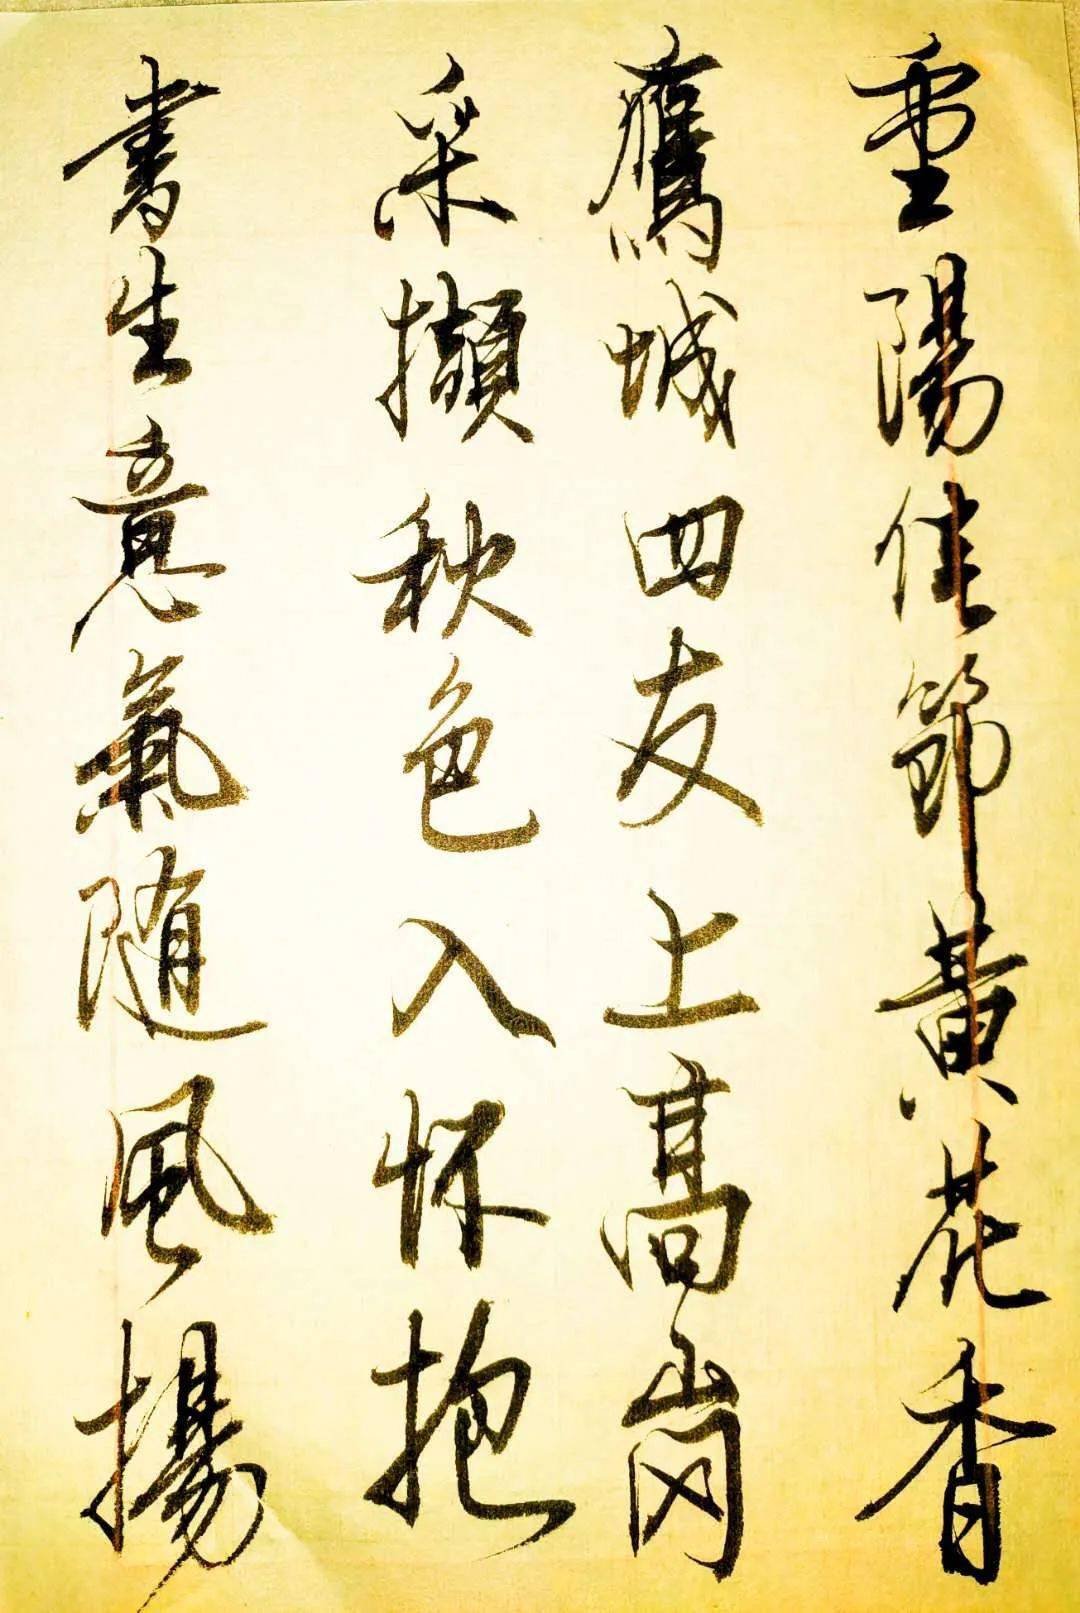 重陽佳節黃花香
鷹城四友上高崗
采擷秋色入怀抱
書生意氣随風揚